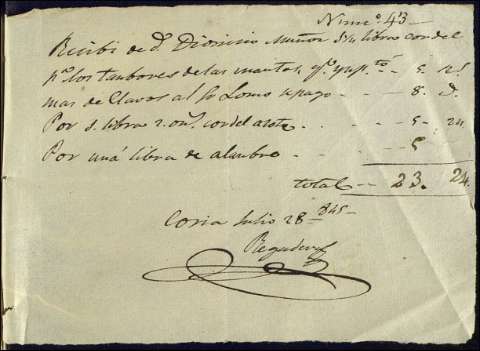 Num.º 43
Recibi de d. Dionicio Muñoz libras cordel
pª los tanbores de las mantas q.e 5.
mas de Clavos al Lomo 8.
Por 5. libras 2. on.s cordel azote 5 - 24
Por una libra de alanbre 5
total -- 23. 24.
Coria Julio 28 845
Regadera